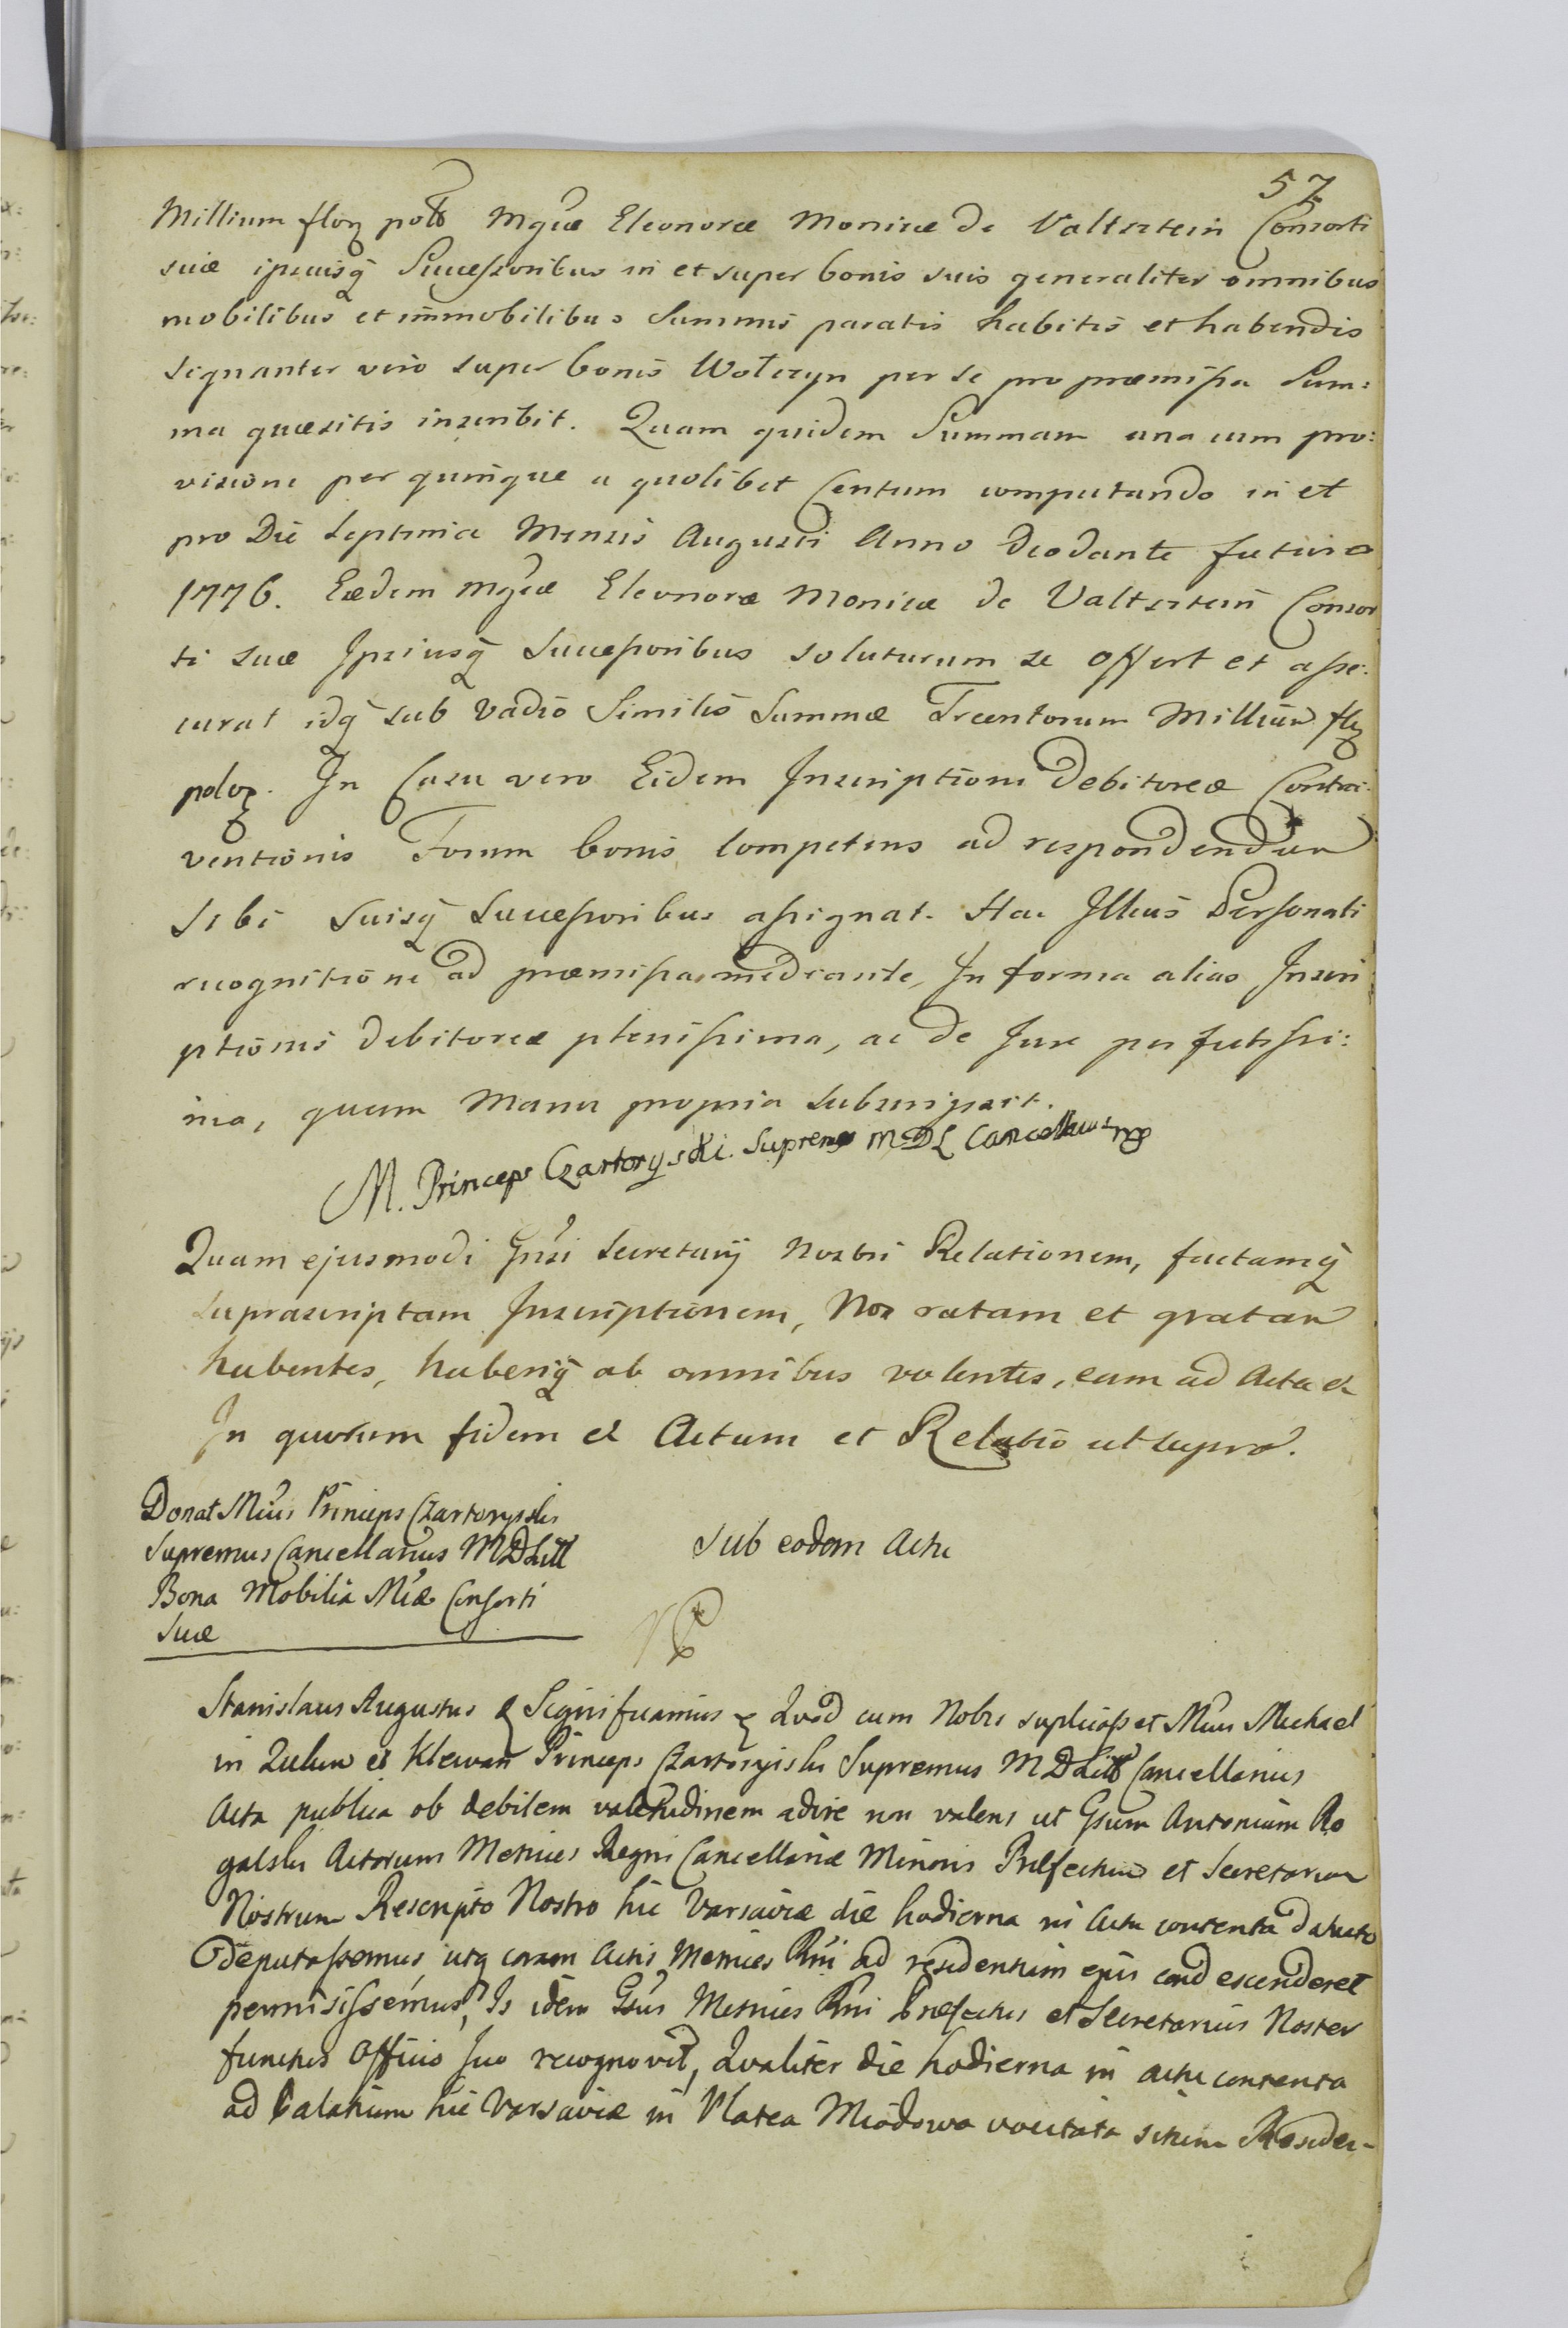 57
Millium florꝝ polo Mgcæ Eleonoræ Monicæ de Valtsztein Consorti
suæ ipsiusq̃ Successoribus in et super bonis suis generaliter omnibus
mobilibus et immobilibus Summis paratis habitis et habendis
signanter vero super bonis Wołczyn per se pro præmissa Sum:
ma quæsitis inscribit. Quam quidem Summam una cum pro:
visione per quinque a quolibet Centum computando in et
pro Die Septima Mensis Augusti Anno Deodante futuro
1776. Eædem Mgcæ Eleonoræ Monicæ de Valtsztein Consor
ti suæ Ipsiusq̃ Successoribus soluturum se offert et asse:
curat idq̃ sub Vadio Similis Summæ Trecentorum Millium flꝝ
poloꝝ. In Casu vero Eidem Inscriptioni Debitoreæ Contra:
ventionis Forum bonis competens ad respondendum
Sibi Suisq̃ Successoribus assignat. Hac Illius Personali
recognitione ad præmissa mediante, In forma alias Inscri
ptionis Debitoreæ plenissima, ac de Jure perfectissi:
ma, quam Manu propria subscripsit.
M. Princeps Czartoryski. Supremus MDL Cancellarius mp
Quam ejusmodi Gnsi Secretarij Nostri Relationem, factamq̃
suprascriptam Inscriptionem, Nos ratam et gratam
habentes, haberiq̃ ab omnibus volentes, eam ad Acta &
In quorum fidem & Actum et Relatio ut supra.
Donat Mius Princeps Czartoryski
Supremus Cancellarius MDLitt
Bona Mobilia Miæ Consorti
Suæ
Sub eodem Actu
Stanislaus Augustus & Significamus & Quod cum Nobis suplicasset Mius Michael
in Zukow et Klewan Princeps Czartoryiski Supremus MDLitt Cancellarius
Acta publica ob debilem valetudinem adire non valens ut Gsum Antonium Ro
galski Actorum Metrices Regni Cancellariæ Minoris Præfectum et Secretarium
Nostrum Rescripto Nostro hic Varsaviæ die hodierna in Actu contenta dato
deputassemus, utq̃ coram Actis Metrices Rni ad residentiam ejus condescenderet
permisissemus, Is idem Gsus Metrices Rni Præfectus et Secretarius Noster
functus Officio suo recognovit, Qvaliter die hodierna in actu contenta
ad Palatium hic Varsaviæ in Platea Miodowa vocitata situm Residen-